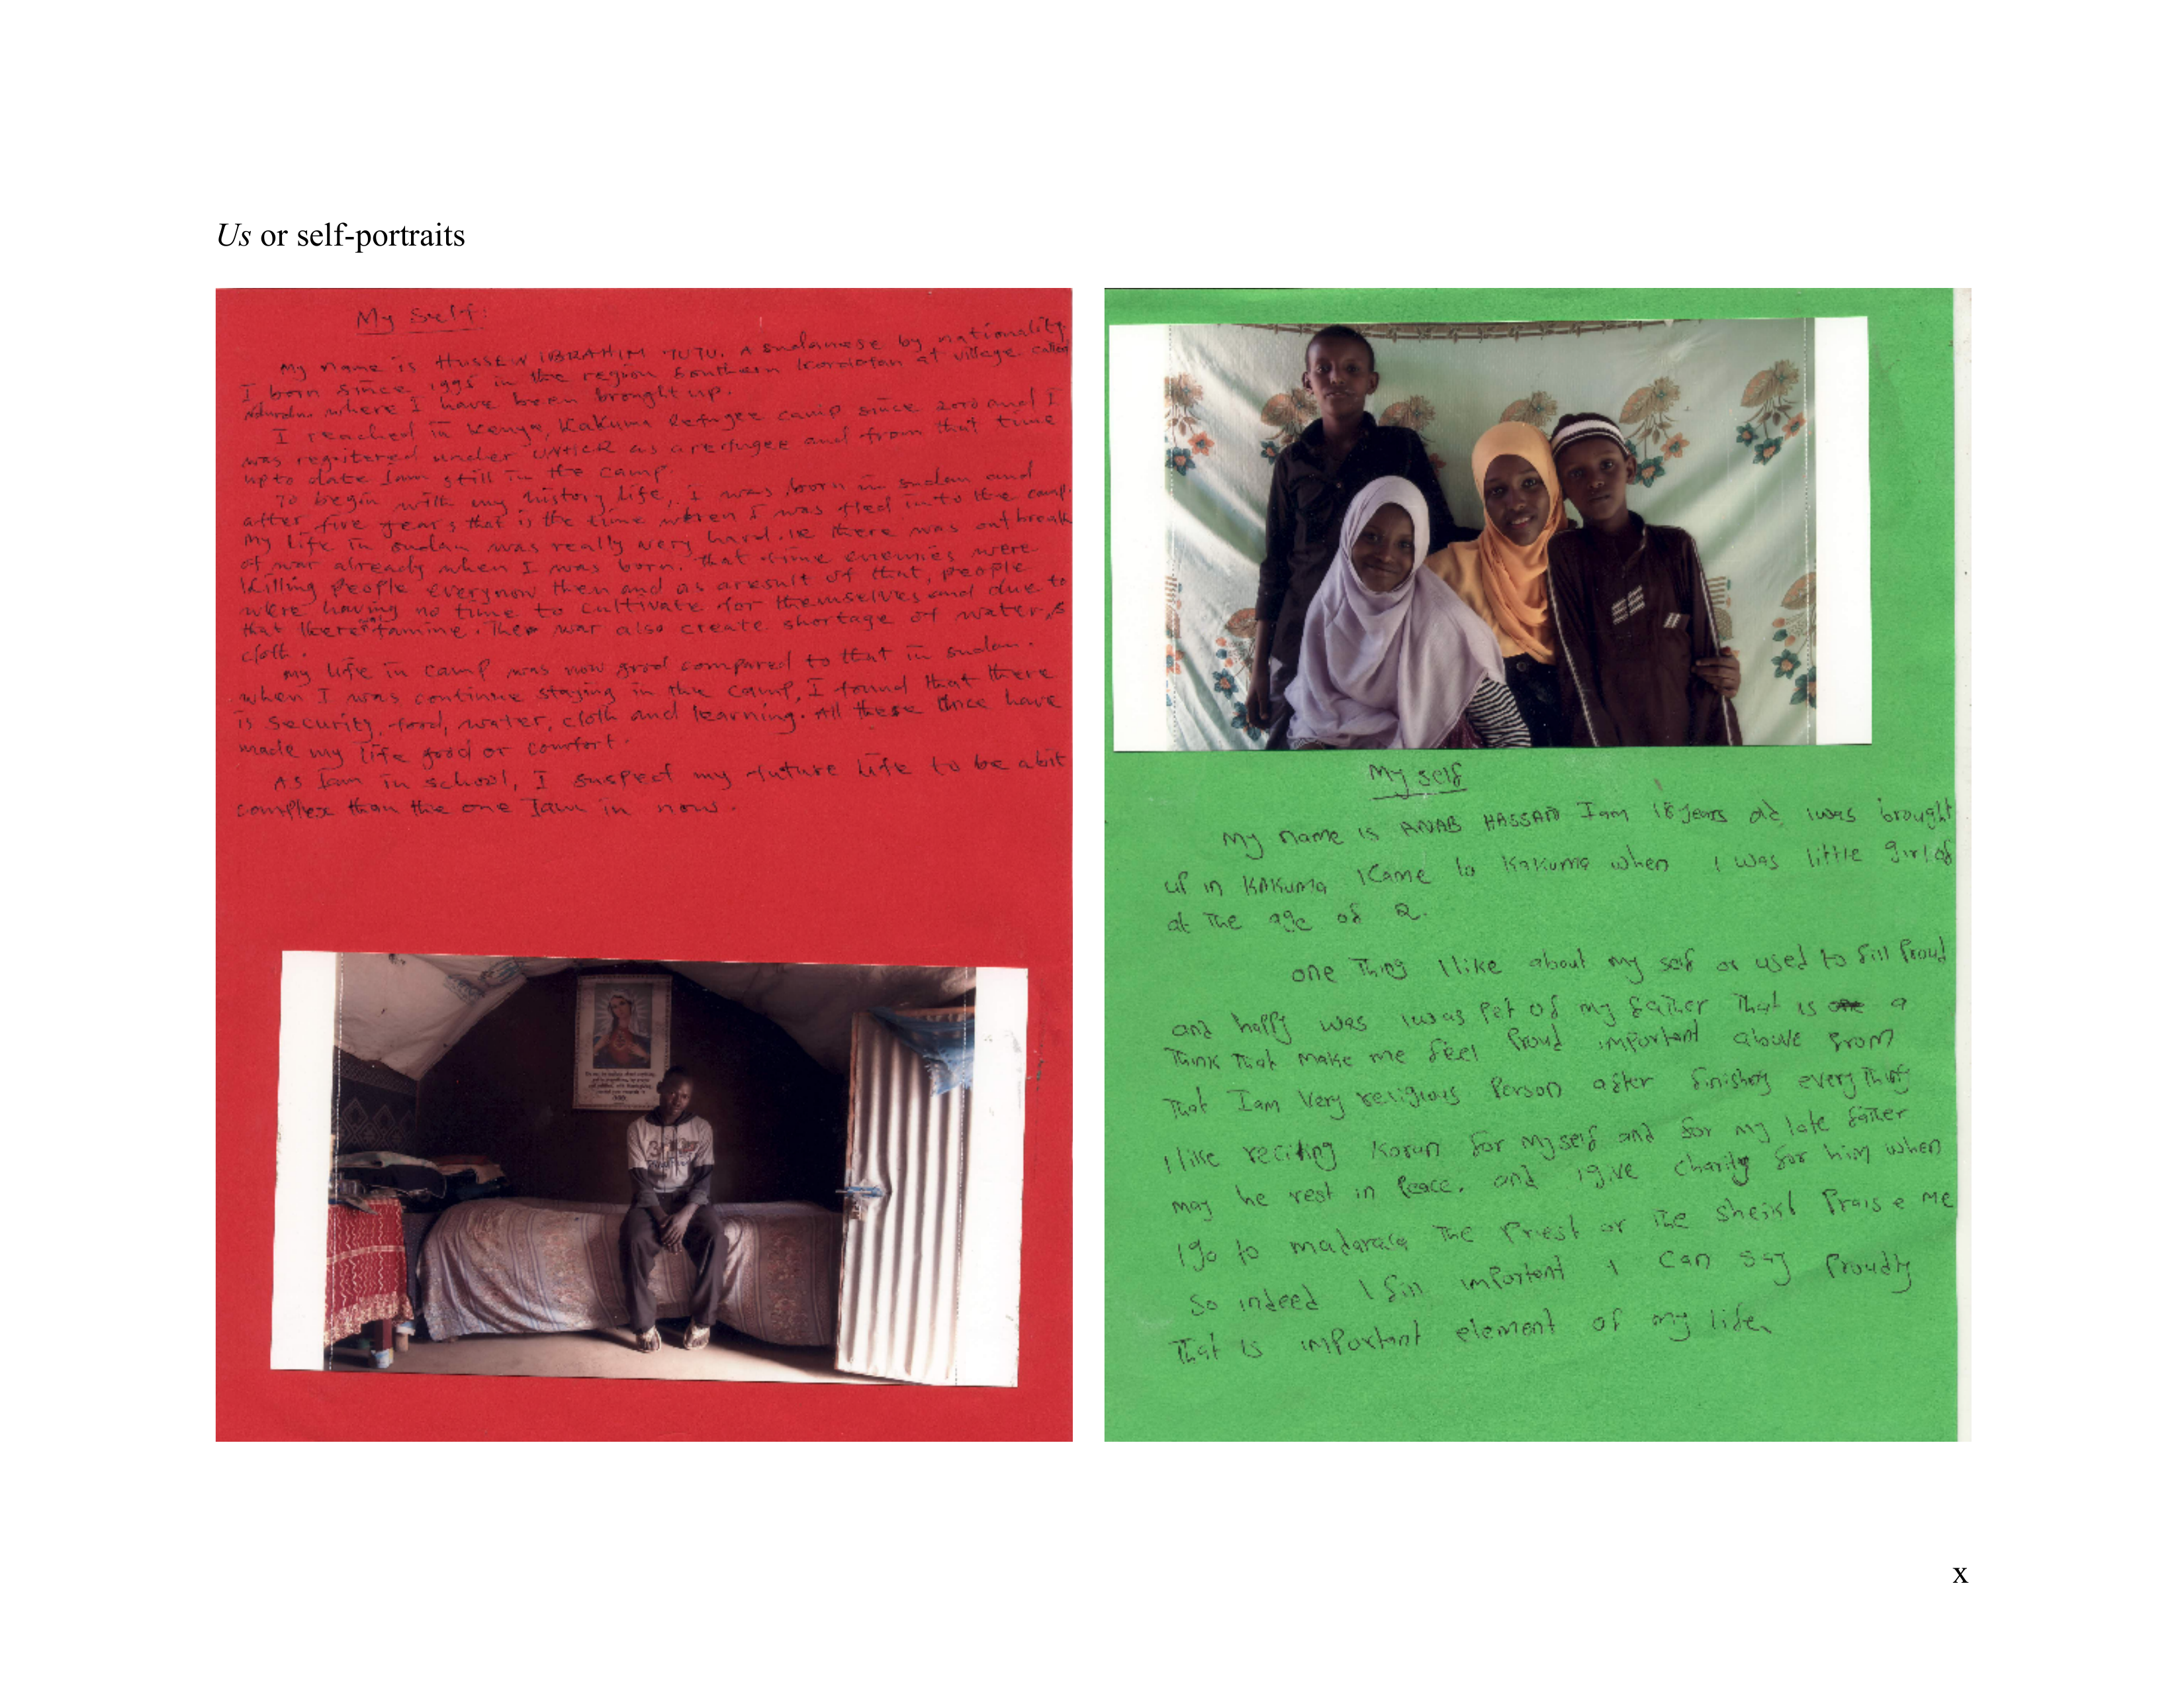 Us or self-portraits
My Self!
My name is HUSSEIN IBRAHIM TUTU. A sudanese by nationality
I born since 1995 in the region Southern Kordofan at village called
where I have been brought up.
I reached in Kenya, Kakuma Refugee camp since 2010 and I
was regitered under UNHCR as arefugee and from that time
upto date Iam still in the camp.
To begin with my history life, I was born in sudan and
after five years that is the time when I was fled into the camp.
My life in sudan was really very hard. ie there was outbreak
of war already when I was born. That time enemies were
killing people everynow then and as aresult of that, people
were having no time to cultivate for themselves and due to
that there was famine. The war also create shortage of water &
cloth.
My life in camp was now good compared to that in sudan.
when I was continue staying in the camp, I found that there
is security, food, water, cloth and learning. All these thice have
made my life good or comfort.
As Iam in school, I suspect my future life to be abit
complex than the one Iam in now.
My self
My name is ANAB HASSAN Iam 18 years old iwas brought
up in KAKUMA ICame to Kakuma when I was little girl of
at the age of 2.
one Thing Ilike about my self or used to fill Proud
and happy was iwas Pet of my father That is a
Think That make me feel Proud important above from
That Iam Very religious Person after finishing everything
I like reciting Koran for Myself and for my late father
may he rest in Peace. and igive charity for him when
I go to The Priest or The sheikh Praise Me
So indeed I fill important I can say Proudly
That is important element of my life
x